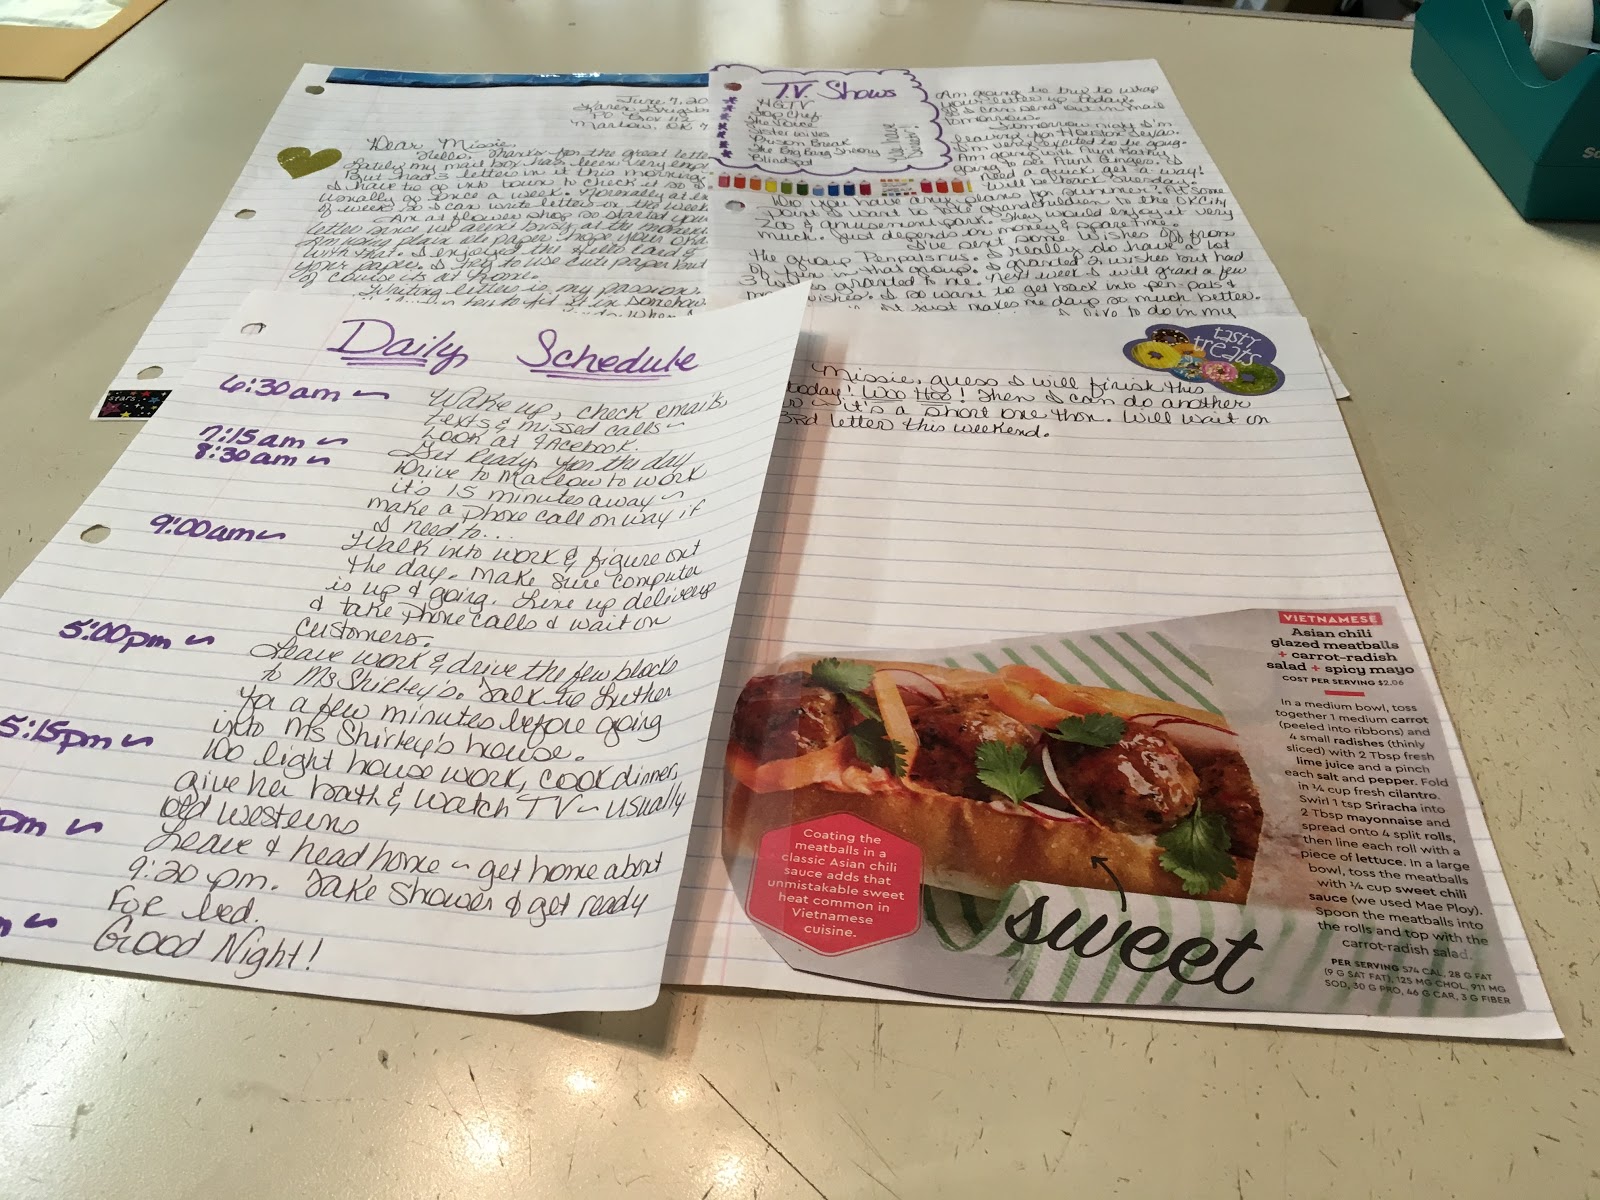 June 7, 20
PO Box 112
Marlow, OK 7
Dear Missie,
Hello, Thanks for the great lette
Lately my mail box has been very emp
But had 3 letters in it this morning.
I have to go into town to check it so I
usually go once a week. Normally at en
of week so I can write letters on the week
Am at flower shop so started your
letter since we aren't busy at the moment.
Am using plain ole paper, hope your oka
with that. I enjoyed the Hello Card &
your paper. I try to use cute paper but
of course its at home.
Writing letters is my passion.
to fit it in somehow
When I
stars
T.V. Shows
HGTV
Top Chef
The Voice
Sister Wives
Prison Break
The Big Bang Theory
Blindspot
We have
Direct!
Am going to try to wrap
your letter up today.
So I can send out in mail
tomorrow.
Tomorrow night I'm
leaving for Houston Texas.
I'm very excited to be going.
Am going with Aunt Kathy
going to see Aunt Ginger. I
need a quick get a way!
Will be back Tuesday.
Do you have any plans for summer? At some
point I want to take grandchildren to the OKCity
Zoo & amusement park. They would enjoy it very
much. Just depends on money & spare time.
I've sent some wishes off from
the group Penpalsrus. I really do have a lot
of fun in that group. I granted 2 wishes but had
3 wishes granted to me. Next week I will grant a few
more wishes. I so want to get back into pen-pals &
it just makes me days so much better.
I live to do in my
tasty
treats
Missie, guess I will finish this
today! Woo Hoo! Then I can do another
it's a short one thon. Will wait on
3rd letter this weekend.
Daily Schedule
6:30am ~ Wake up, check emails,
texts & missed calls ~
Look at Facebook.
7:15am ~ Get Ready for the day
8:30am ~ Drive to Marlow to work
it's 15 minutes away ~
make a phone call on way if
I need to...
9:00am ~ Walk into work & figure out
the day. Make sure computer
is up & going. Line up deliverys
& take Phone calls & wait on
customers.
5:00pm ~ Leave work & drive the few blocks
to Ms Shirley's. Talk to Luther
for a few minutes before going
into Ms Shirley's house.
5:15pm ~ Do light house work, cook dinner,
give her bath & watch TV ~ usually
old westerns
pm ~ Leave & head home ~ get home about
9:20 pm. Take shower & get ready
For bed.
~ Good Night!
VIETNAMESE
Asian chili
glazed meatballs
+ carrot-radish
salad + spicy mayo
COST PER SERVING $2.06
In a medium bowl, toss
together 1 medium carrot
(peeled into ribbons) and
4 small radishes (thinly
sliced) with 2 Tbsp fresh
lime juice and a pinch
each salt and pepper. Fold
in ¼ cup fresh cilantro.
Swirl 1 tsp Sriracha into
2 Tbsp mayonnaise and
spread onto 4 split rolls,
then line each roll with a
piece of lettuce. In a large
bowl, toss the meatballs
with ¼ cup sweet chili
sauce (we used Mae Ploy).
Spoon the meatballs into
the rolls and top with the
carrot-radish salad.
PER SERVING 574 CAL, 28 G FAT
(9 G SAT FAT), 125 MG CHOL, 911 MG
SOD, 30 G PRO, 46 G CAR, 3 G FIBER
Coating the
meatballs in a
classic Asian chili
sauce adds that
unmistakable sweet
heat common in
Vietnamese
cuisine.
sweet